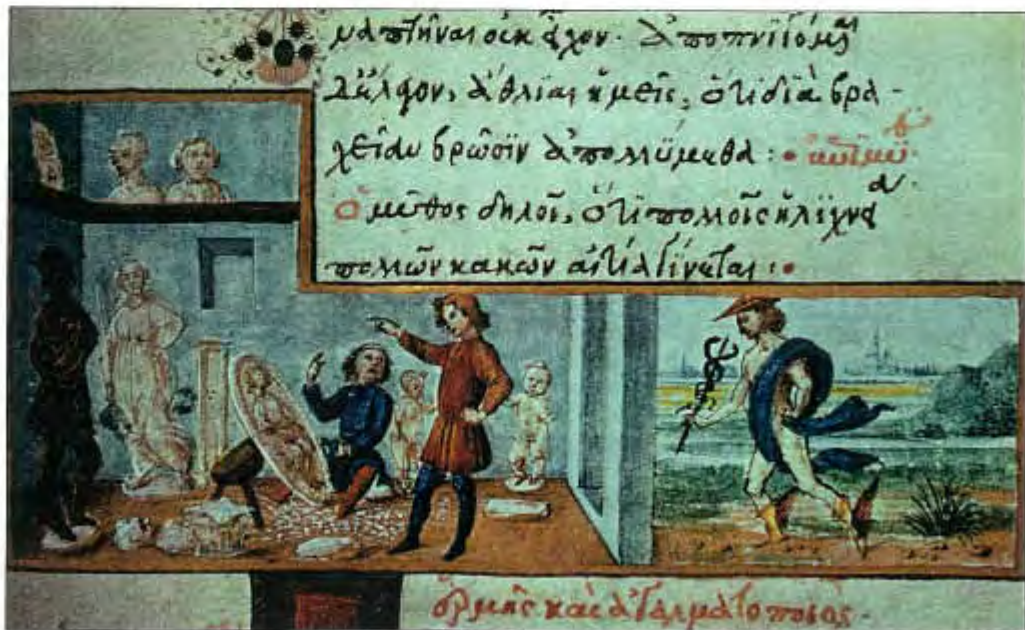 μαπτῆναι οὐκ ἔχον· ἀποπνιγόμεναι
δὲ ἔλεγον, ἄθλιαι ἡμεῖς, ὅτι διὰ βρα-
χεῖαν βρῶσιν ἀπολλύμεθα :· ἐπιμύ
Ὁ μῦθος δηλοῖ, ὅτι πολλοῖς ἡ λιχνεία
πολλῶν κακῶν αἰτία γίνεται :·
ἑρμῆς καὶ ἀγαλματοποιός·